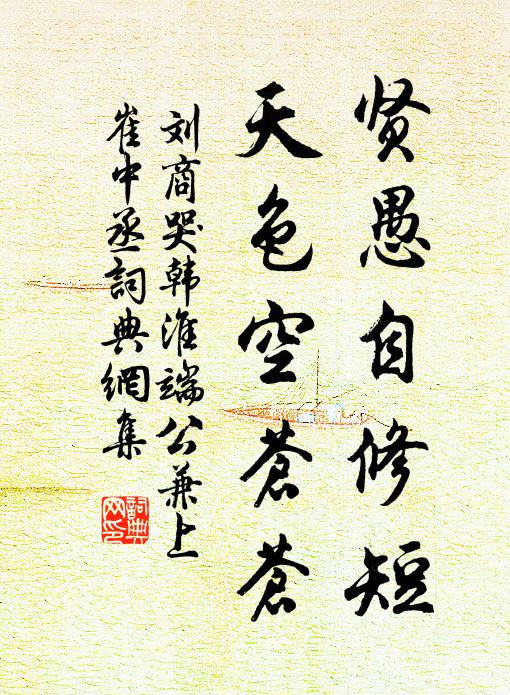 贤愚自修短
天色空苍苍
刘商哭韩淮端公兼上
崔中丞词典網集
詞典网印